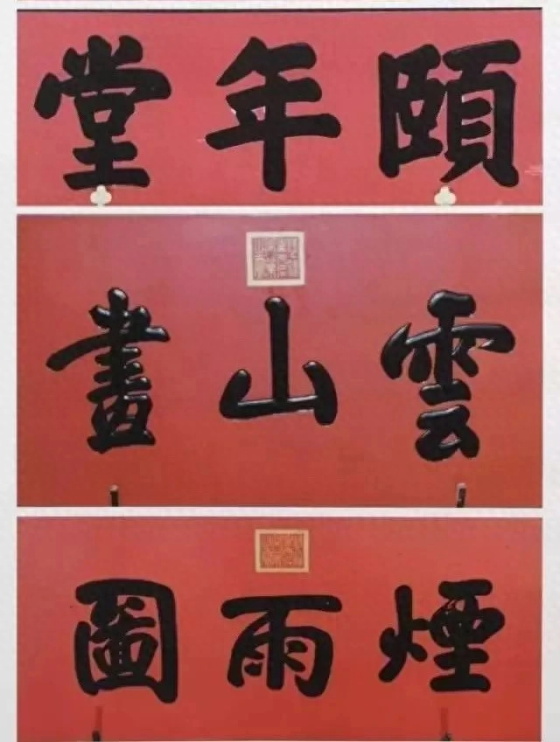 頤年堂
雲山畫
煙雨圖